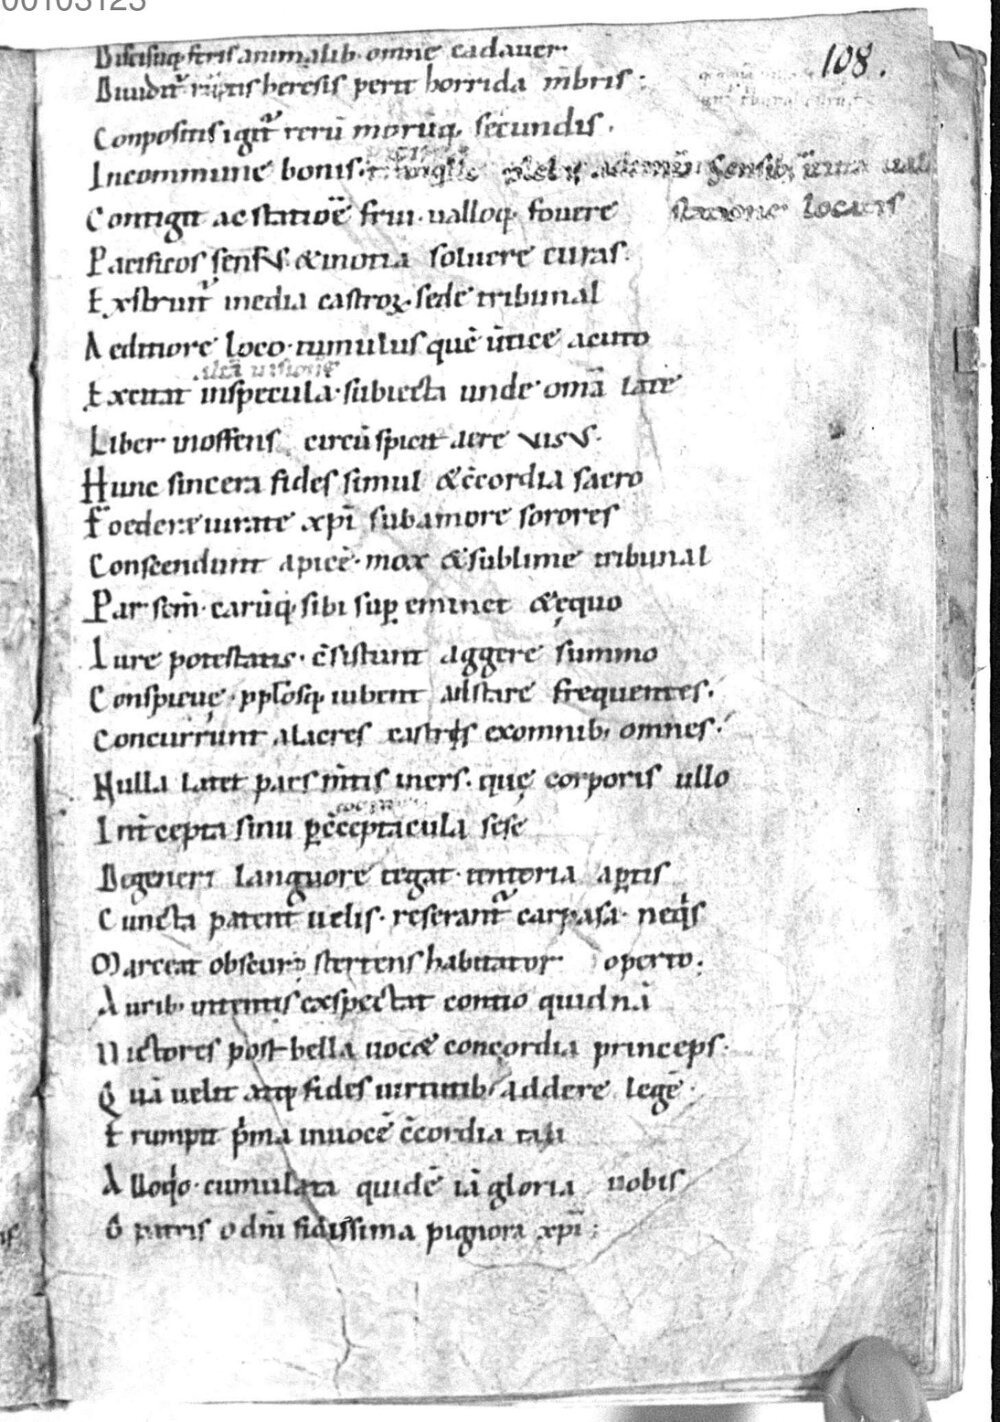 00103123
108.
Discissũq; feris animalib; omne cadauer.
Diuidit᷑ ruptis heresis perit horrida mẽbris:
Conpositis igit᷑ rerũ morũq; secundis.
In commune bonis. tranquillę plebis ad unũ sensib; in tuta ualli
Contigit ac statiõe frui. ualloq; fouere statione locatis
Pacificos sensus. & inotia soluere curas.
Exstruit᷑ media castroꝝ sede tribunal
A editiore loco. tumulus quẽ ũtice acuto
Excitat inspecula. subiecta unde omã late
Liber inoffens circũspicit aere visus.
Hunc sincera fides simul & c̃cordia sacro
Foedere iurate xp̃i sub amore sorores
Conscendunt apicẽ. mox & sublime tribunal
Par sem̃. carũq; sibi suꝑ eminet & ęquo
Iure potestatis. c̃sistunt aggere summo
Conspicuę. pp̃losq; iubent adstare frequentes.
Concurrunt alacres castris exomnib; omnes.
Nulla latet pars m̃tis iners. quę corporis ullo
Int̃cepta sinu ꝑ c̃ceptacula sese
Degeneri languore tegat. tentoria aꝑtis
Cuncta patent uelis. reserant᷑ carpasa. neq̇s
Marceat obscuro stertens habitator operto.
Aurib; intentis exspectat contio quidnã
Uictores post bella uocæ concordia princeps.
Quã uelit atq; fides uirtutib; addere legẽ.
Erumpit p̃ma inuocẽ c̃cordia tali
Alloq̇o. cumulata quidẽ iã gloria uobis
O patris o dñi fidissima pignora xp̃i;